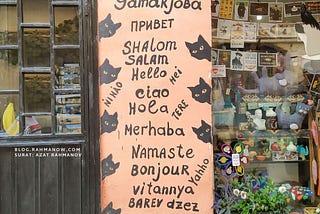 gamarjoba
ПРИВЕТ
SHALOM
SALAM
Hello
Hei
NIHAO
ciao
Hola
TERE
Merhaba
NAMASTE
Bonjour
Yahho
vitannya
BAREV dzez
BLOG.RAHMANOW.COM
SURAT: AZAT RAHMANOV